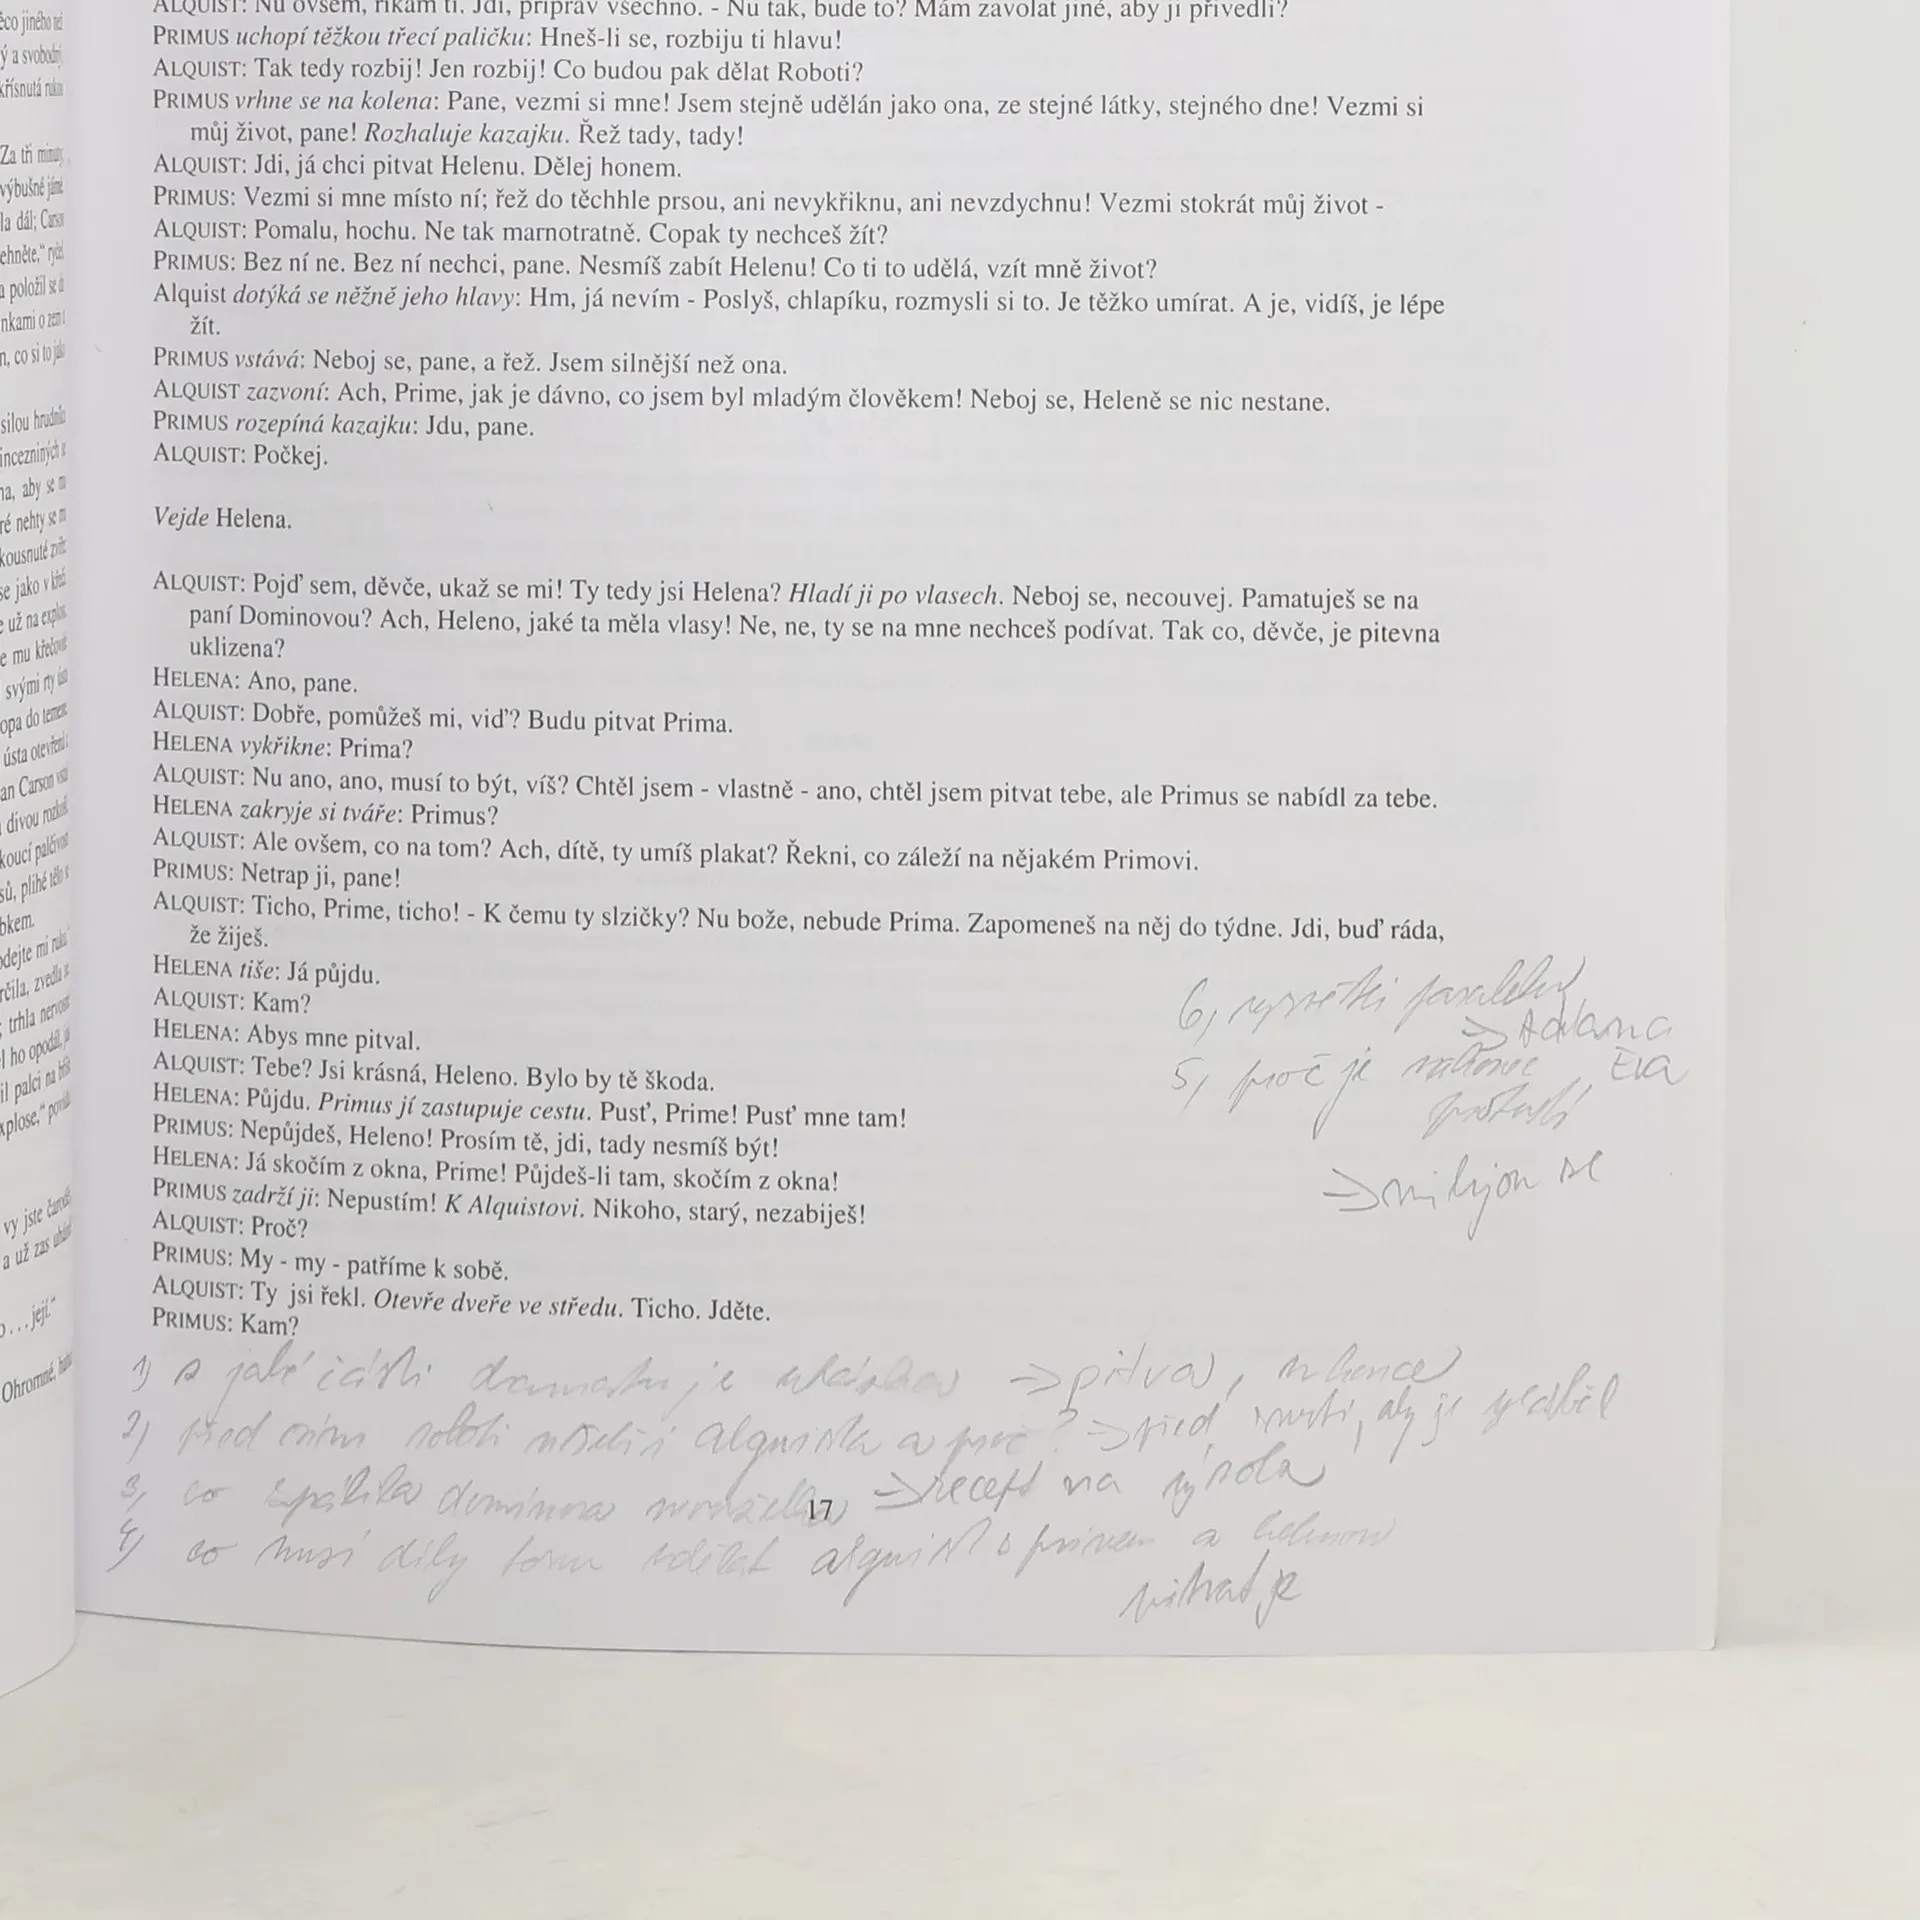 ALQUIST: Nu ovšem, říkám ti. Jdi, připrav všechno. - Nu tak, bude to? Mám zavolat jiné, aby ji přivedli?
PRIMUS uchopí těžkou třecí paličku: Hneš-li se, rozbiju ti hlavu!
ALQUIST: Tak tedy rozbij! Jen rozbij! Co budou pak dělat Roboti?
PRIMUS vrhne se na kolena: Pane, vezmi si mne! Jsem stejně udělán jako ona, ze stejné látky, stejného dne! Vezmi si
můj život, pane! Rozhaluje kazajku. Řež tady, tady!
ALQUIST: Jdi, já chci pitvat Helenu. Dělej honem.
PRIMUS: Vezmi si mne místo ní; řež do těchhle prsou, ani nevykřiknu, ani nevzdychnu! Vezmi stokrát můj život -
ALQUIST: Pomalu, hochu. Ne tak marnotratně. Copak ty nechceš žít?
PRIMUS: Bez ní ne. Bez ní nechci, pane. Nesmíš zabít Helenu! Co ti to udělá, vzít mně život?
Alquist dotýká se něžně jeho hlavy: Hm, já nevím - Poslyš, chlapíku, rozmysli si to. Je těžko umírat. A je, vidíš, je lépe
žít.
PRIMUS vstává: Neboj se, pane, a řež. Jsem silnější než ona.
ALQUIST zazvoní: Ach, Prime, jak je dávno, co jsem byl mladým člověkem! Neboj se, Heleně se nic nestane.
PRIMUS rozepíná kazajku: Jdu, pane.
ALQUIST: Počkej.
Vejde Helena.
ALQUIST: Pojď sem, děvče, ukaž se mi! Ty tedy jsi Helena? Hladí ji po vlasech. Neboj se, necouvej. Pamatuješ se na
paní Dominovou? Ach, Heleno, jaké ta měla vlasy! Ne, ne, ty se na mne nechceš podívat. Tak co, děvče, je pitevna
uklizena?
HELENA: Ano, pane.
ALQUIST: Dobře, pomůžeš mi, viď? Budu pitvat Prima.
HELENA vykřikne: Prima?
ALQUIST: Nu ano, ano, musí to být, víš? Chtěl jsem - vlastně - ano, chtěl jsem pitvat tebe, ale Primus se nabídl za tebe.
HELENA zakryje si tváře: Primus?
ALQUIST: Ale ovšem, co na tom? Ach, dítě, ty umíš plakat? Řekni, co záleží na nějakém Primovi.
PRIMUS: Netrap ji, pane!
ALQUIST: Ticho, Prime, ticho! - K čemu ty slzičky? Nu bože, nebude Prima. Zapomeneš na něj do týdne. Jdi, buď ráda,
že žiješ.
HELENA tiše: Já půjdu.
ALQUIST: Kam?
HELENA: Abys mne pitval.
ALQUIST: Tebe? Jsi krásná, Heleno. Bylo by tě škoda.
HELENA: Půjdu. Primus jí zastupuje cestu. Pusť, Prime! Pusť mne tam!
PRIMUS: Nepůjdeš, Heleno! Prosím tě, jdi, tady nesmíš být!
HELENA: Já skočím z okna, Prime! Půjdeš-li tam, skočím z okna!
PRIMUS zadrží ji: Nepustím! K Alquistovi. Nikoho, starý, nezabiješ!
ALQUIST: Proč?
PRIMUS: My - my - patříme k sobě.
ALQUIST: Ty jsi řekl. Otevře dveře ve středu. Ticho. Jděte.
PRIMUS: Kam?
6, vysvětli paralelu
=> Adam a
Eva
5, proč je nakonec
pustil
=> milujou se
1) z jaké části dramatu je ukázka => pitva, u konce
2) před čím roboti ušetřili alquista a proč? => před smrtí, aby je
3, co spálila dominova manželka => recept na
4) co musí díky tomu udělat alquist s primem a helenou
pitvat je
17